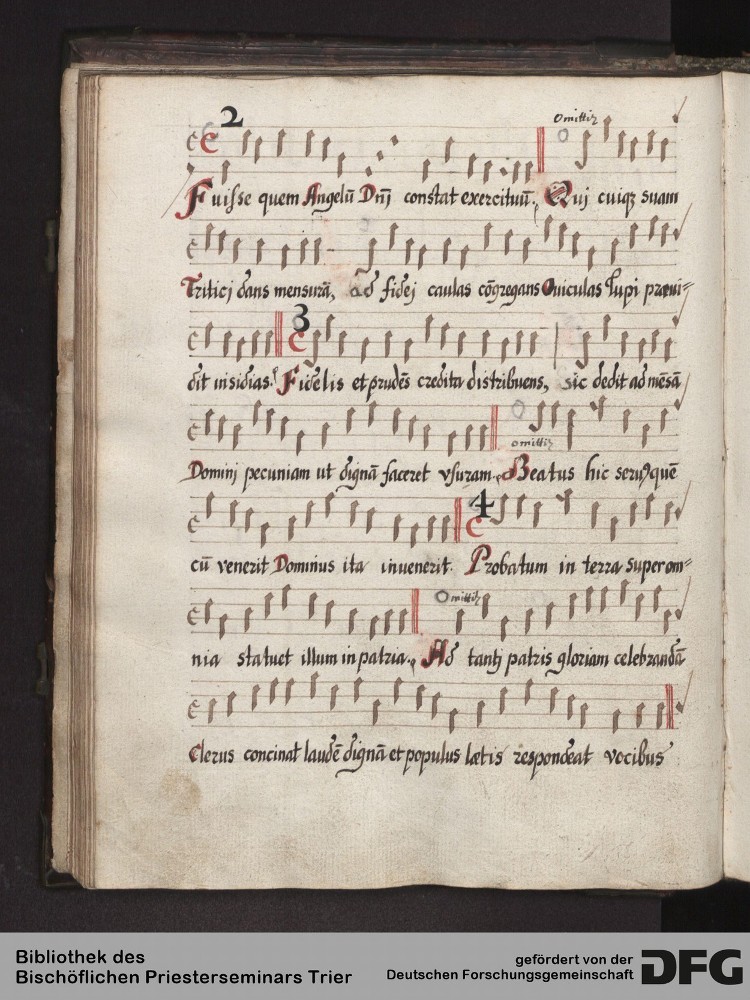 2 Omittit̃
Fuisse quem Angelũ Dnj̃ constat exercituũ. Quj cuiqz suam
Triticj dans mensurã, ad fidej caulas cõgregans Ouiculas Lupi præui=
3
dit insidias. Fidelis et prudẽs credita distribuens, sic dedit ad mẽsã
omittit̃
Dominj pecuniam ut dignã faceret vsuram. Beatus hic seruꝰ quẽ
4
cũ venerit Dominus ita inuenerit. Probatum in terra super om=
Omittit̃
nia statuet illum in patria. Ad tantj patris gloriam celebrandã
Clerus concinat laudẽ dignã et populus lætis respondeat vocibus
Bibliothek des
Bischöflichen Priesterseminars Trier
gefördert von der
Deutschen Forschungsgemeinschaft
DFG